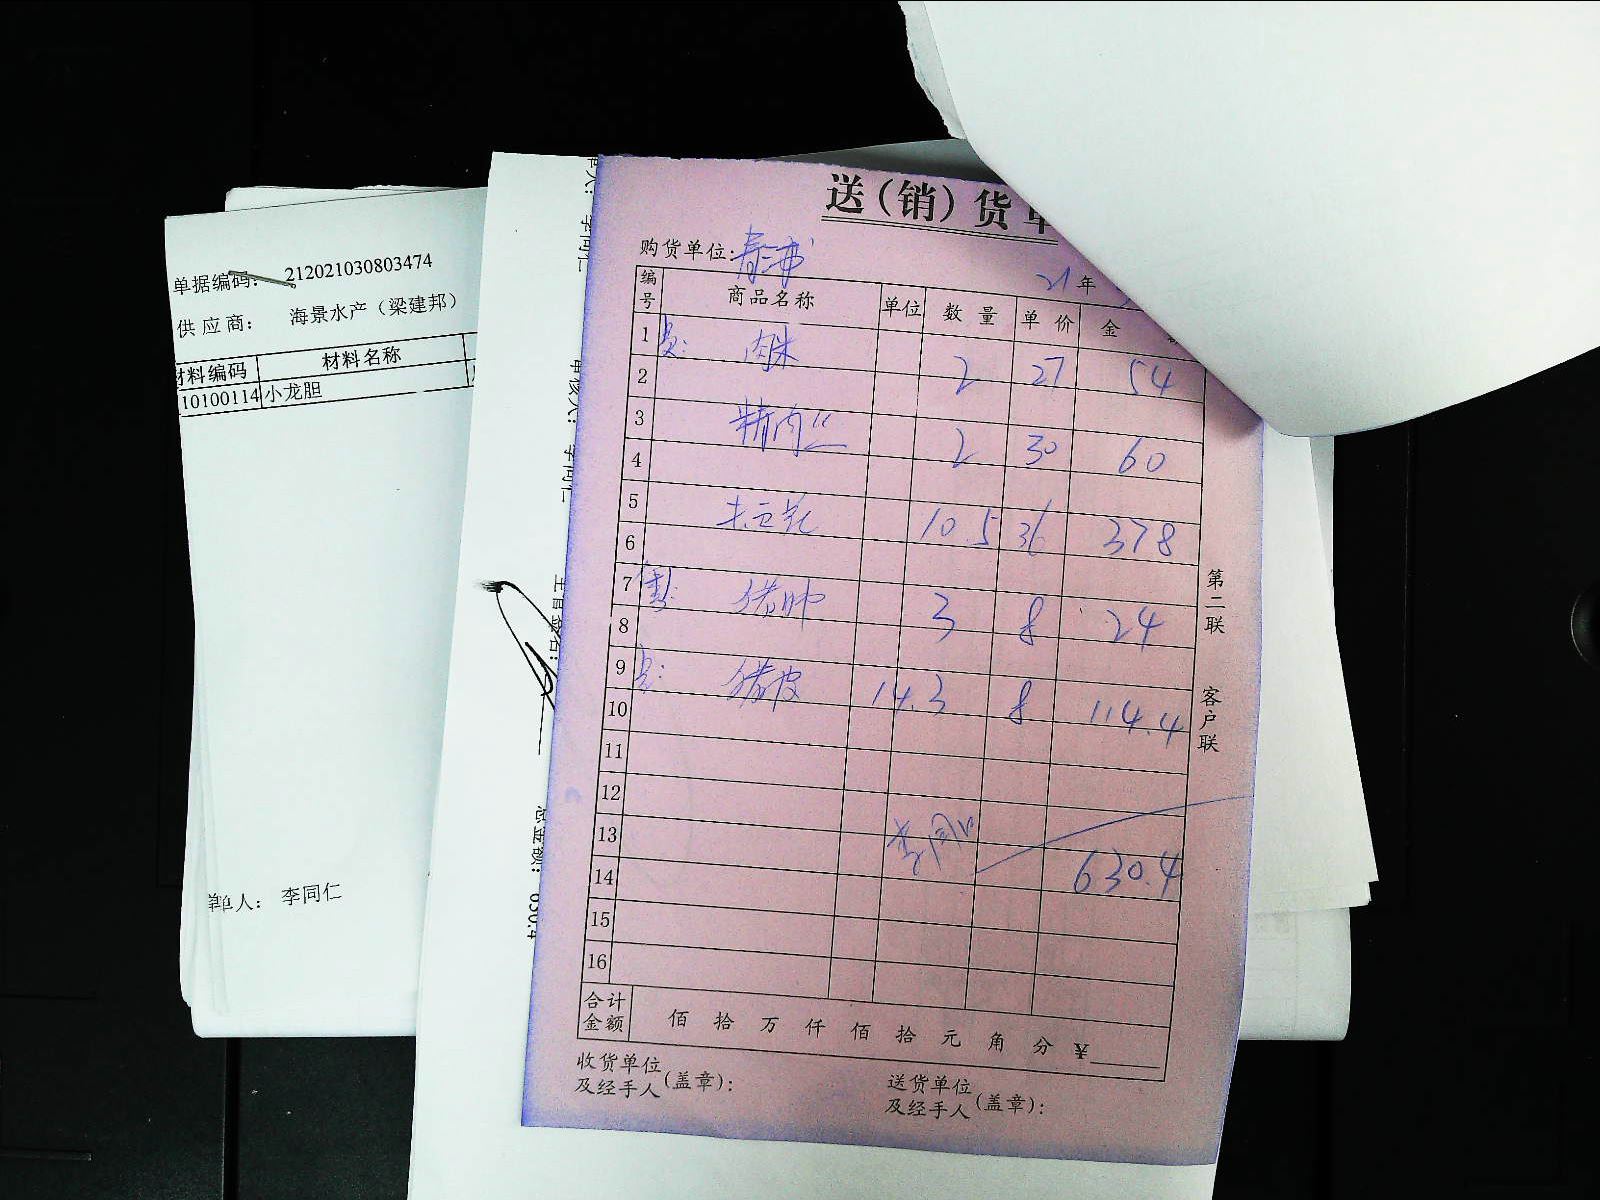 单据编码: 212021030803474
供 应 商: 海景水产（梁建邦）
材料编码 材料名称
10100114 小龙胆
单人: 李同仁
主管签名:
总金额: 630.4
送（销）货单
购货单位:
21 年
编号 商品名称 单位 数 量 单 价 金 额
1 肉末
2 2 27 54
3 精肉丝
4 2 30 60
5
6 10.5 36 378
7 猪肺
8 3 8 24
9 猪皮
10 14.3 8 114.4
11
12
13 李同仁
14 630.4
15
16
合计金额 佰 拾 万 仟 佰 拾 元 角 分 ¥
收货单位
及经手人（盖章）:
送货单位
及经手人（盖章）:
第二联
客户联